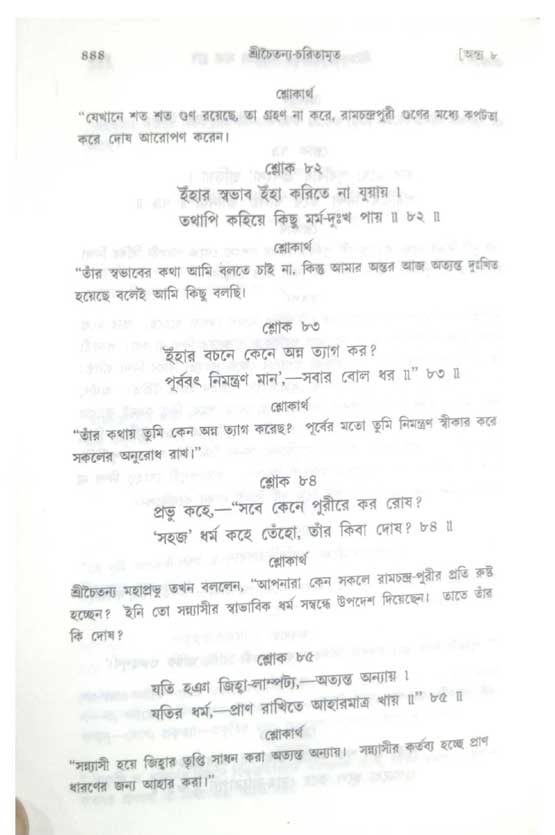 ৪৪৪ শ্রীচৈতন্য-চরিতামৃত [অন্ত্য ৮
শ্লোকার্থ
"যেখানে শত শত গুণ রয়েছে, তা গ্রহণ না করে, রামচন্দ্রপুরী গুণের মধ্যে কপটতা
করে দোষ আরোপণ করেন।
শ্লোক ৮২
ইঁহার স্বভাব ইঁহা করিতে না যুয়ায় ।
তথাপি কহিয়ে কিছু মর্ম-দুঃখ পায় ॥ ৮২ ॥
শ্লোকার্থ
"তাঁর স্বভাবের কথা আমি বলতে চাই না, কিন্তু আমার অন্তর আজ অত্যন্ত দুঃখিত
হয়েছে বলেই আমি কিছু বলছি।
শ্লোক ৮৩
ইঁহার বচনে কেনে অন্ন ত্যাগ কর?
পূর্ববৎ নিমন্ত্রণ মান',—সবার বোল ধর ॥" ৮৩ ॥
শ্লোকার্থ
"তাঁর কথায় তুমি কেন অন্ন ত্যাগ করেছ? পূর্বের মতো তুমি নিমন্ত্রণ স্বীকার করে
সকলের অনুরোধ রাখ।"
শ্লোক ৮৪
প্রভু কহে,—"সবে কেনে পুরীরে কর রোষ?
'সহজ' ধর্ম কহে তেঁহো, তাঁর কিবা দোষ? ৮৪ ॥
শ্লোকার্থ
শ্রীচৈতন্য মহাপ্রভু তখন বললেন, "আপনারা কেন সকলে রামচন্দ্র-পুরীর প্রতি রুষ্ট
হচ্ছেন? ইনি তো সন্ন্যাসীর স্বাভাবিক ধর্ম সম্বন্ধে উপদেশ দিয়েছেন। তাতে তাঁর
কি দোষ?
শ্লোক ৮৫
যতি হঞা জিহ্বা-লাম্পট্য,—অত্যন্ত অন্যায় ।
যতির ধর্ম,—প্রাণ রাখিতে আহারমাত্র খায় ॥" ৮৫ ॥
শ্লোকার্থ
"সন্ন্যাসী হয়ে জিহ্বার তৃপ্তি সাধন করা অত্যন্ত অন্যায়। সন্ন্যাসীর কর্তব্য হচ্ছে প্রাণ
ধারণের জন্য আহার করা।"